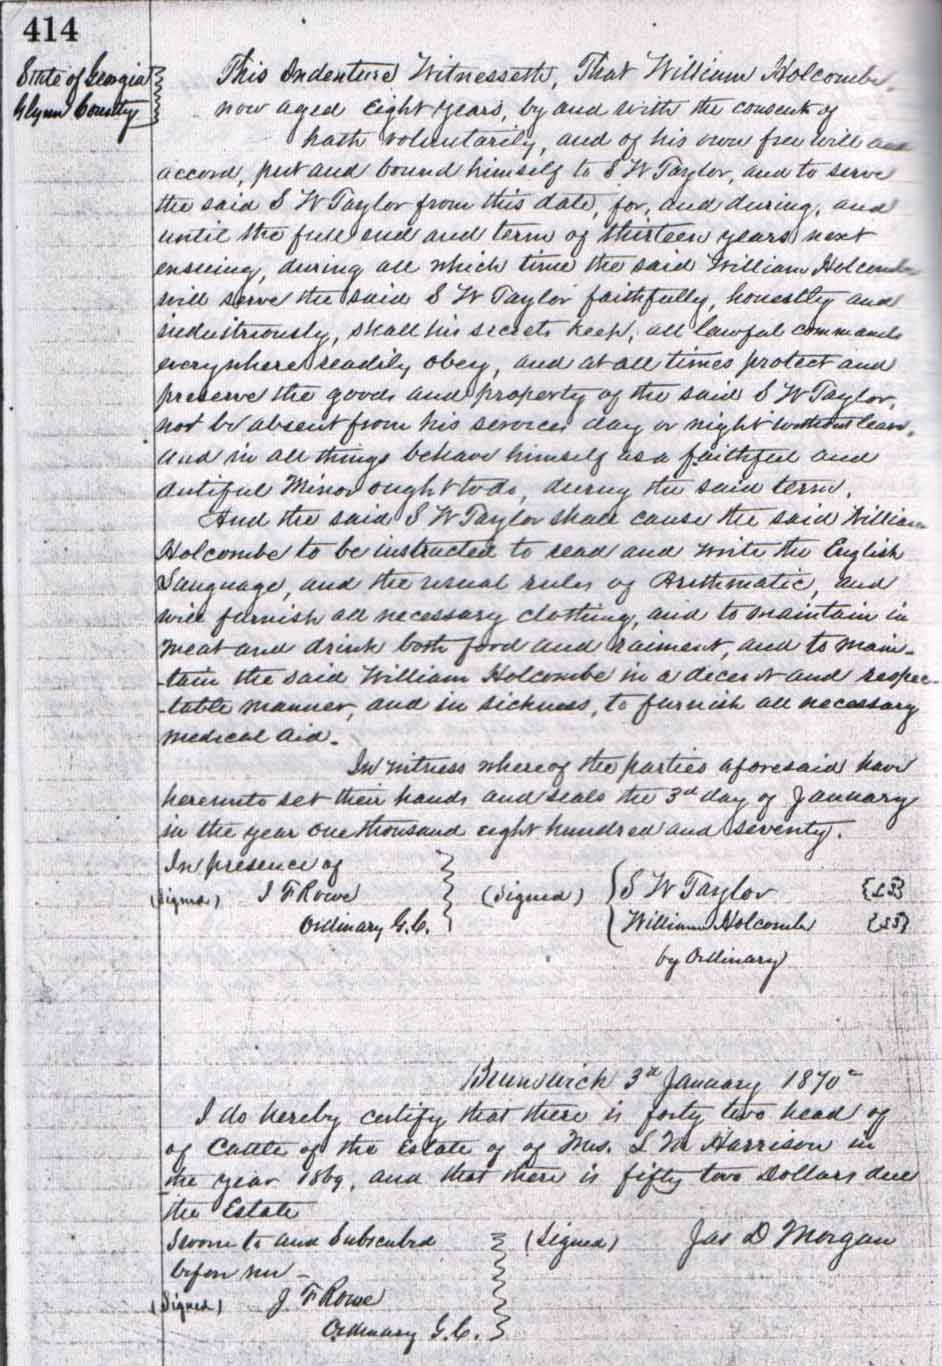 414
State of Georgia
Glynn County
This Indenture Witnesseth, That William Holcombe,
now aged Eight years, by and with the consent of
hath voluntarily, and of his own free will and
accord, put and bound himself to S W Taylor, and to serve
the said S W Taylor from this date, for, and during, and
until the full end and term of thirteen years next
ensueing, during all which time the said William Holcombe
will serve the said S W Taylor faithfully, honestly and
industriously, shall his secrets keep, all lawful commands
everywhere readily obey, and at all times protect and
preserve the goods and property of the said S W Taylor,
not be absent from his services day or night without leave,
and in all things behave himself as a faithful and
dutiful Minor ought to do, during the said term.
And the said S W Taylor shall cause the said William
Holcombe to be instructed to read and write the English
Language, and the usual rules of Arithmatic, and
will furnish all necessary clothing, and to maintain in
meat and drink both food and raiment, and to main-
-tain the said William Holcombe in a decent and respec-
-table manner, and in sickness, to furnish all necessary
medical aid.
In witness whereof the parties aforesaid have
hereunto set their hands and seals the 3rd day of January
in the year one thousand eight hundred and seventy.
In presence of
(Signed) J F Rowe (Signed) S W Taylor {LS}
Ordinary G.C. William Holcombe {LS}
by Ordinary
Brunswick 3d January 1870
I do hereby certify that there is forty two head of
of Cattle of the Estate of of Mrs. L M Harrison in
the year 1869, and that there is fifty two Dollars due
the Estate
Sworn to and Subscribed (Signed) Jas D Morgan
before me
(Signed) J. F Rowe
Ordinary G.C.